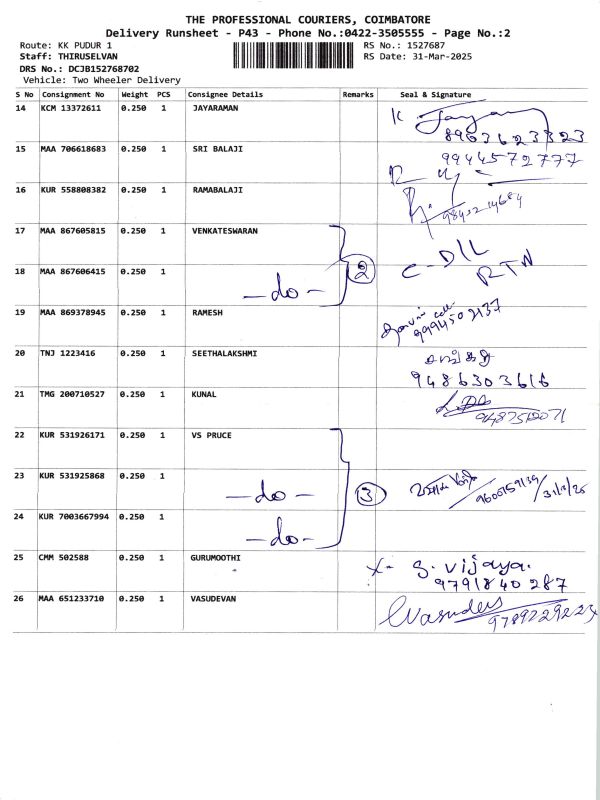 THE PROFESSIONAL COURIERS, COIMBATORE
Delivery Runsheet - P43 - Phone No.:0422-3505555 - Page No.:2
Route: KK PUDUR 1
RS No.: 1527687
Staff: THIRUSELVAN
RS Date: 31-Mar-2025
DRS No.: DCJB152768702
Vehicle: Two Wheeler Delivery
S No Consignment No Weight PCS Consignee Details Remarks Seal & Signature
14 KCM 13372611 0.250 1 JAYARAMAN K Jayaram
8903623323
15 MAA 706618683 0.250 1 SRI BALAJI 9944572777
16 KUR 558808382 0.250 1 RAMABALAJI
17 MAA 867605815 0.250 1 VENKATESWARAN
18 MAA 867606415 0.250 1 —do— 2 C-DLL
RTN
19 MAA 869378945 0.250 1 RAMESH 9994502137
20 TNJ 1223416 0.250 1 SEETHALAKSHMI
9486303616
21 TMG 200710527 0.250 1 KUNAL
22 KUR 531926171 0.250 1 VS PRUCE
23 KUR 531925868 0.250 1 —do— 3
24 KUR 7003667994 0.250 1 —do—
25 CMM 502588 0.250 1 GURUMOOTHI X- S. vijaya.
9791840287
26 MAA 651233710 0.250 1 VASUDEVAN Vasudev
9789229223